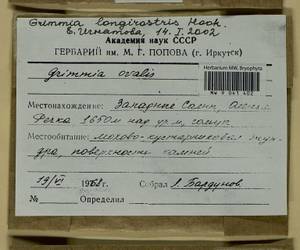 Grimmia longirostris Hook.
Е. Игнатова, 14.I.2002
Академия наук СССР
ГЕРБАРИЙ им. М. Г. ПОПОВА (г. Иркутск)
Herbarium MW, Bryophyta
MW 9 041 402
Grimmia ovalis
Местонахождение: Западные Саяны,
Речка 1650 м над ур. м,
Местообитание: мохово-кустарниковая тун-
дра, поверхность камней
19/VI
Собрал Л. Бардунов
№ Определил